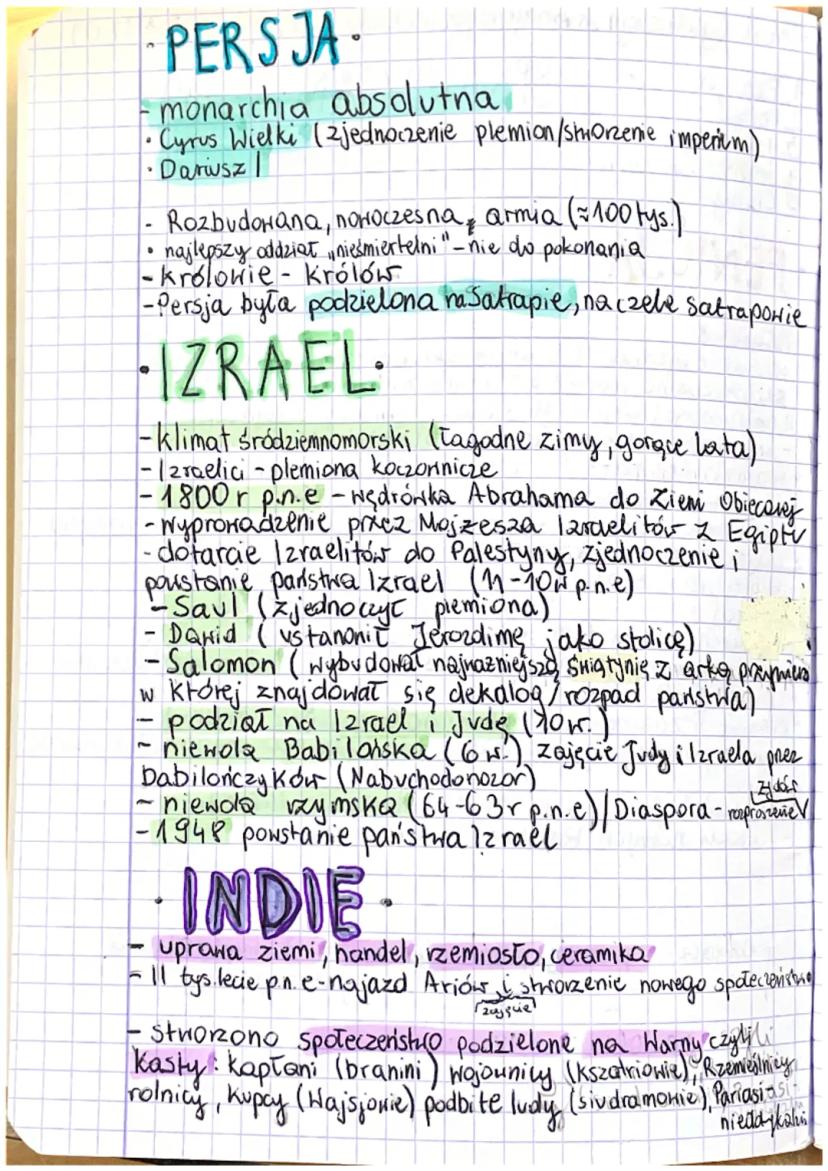 · PERSJA ·
- monarchia absolutna
· Cyrus Wielki (zjednoczenie plemion/stworzenie imperium)
· Dariusz I
- Rozbudowana, nowoczesna, armia (≈100 tys.)
• najlepszy oddział „nieśmiertelni" - nie do pokonania
- królowie - królów
- Persja była podzielona na Satrapie, na czele satrapowie
· IZRAEL ·
- klimat śródziemnomorski (łagodne zimy, gorące lata)
- Izraelici - plemiona koczownicze
- 1800 r p.n.e - wędrówka Abrahama do Ziemi Obiecanej
- wyprowadzenie przez Mojżesza Izraelitów z Egiptu
- dotarcie Izraelitów do Palestyny, zjednoczenie i
powstanie państwa Izrael (11-10w p.n.e)
- Saul (zjednoczył plemiona)
- Dawid (ustanowił Jerozolimę jako stolicę)
- Salomon (wybudował najważniejszą świątynię z arką przymierza
w której znajdował się dekalog/rozpad państwa)
- podział na Izrael i Judę (10w.)
- niewola Babilońska (6w.) zajęcie Judy i Izraela przez
babilończyków (Nabuchodonozor)
- niewola rzymska (64-63r p.n.e)/Diaspora - rozproszenie żydów
- 1948 powstanie państwa Izrael
· INDIE ·
- uprawa ziemi, handel, rzemiosło, ceramika
- II tys.lecie p.n.e - najazd Ariów i stworzenie nowego społeczeństwa
zajęcie
- stworzono społeczeństwo podzielone na Warny czyli
kasty: kapłani (bramini) wojownicy (kszatriowie), Rzemieślnicy
rolnicy, kupcy (Wajsjowie) podbite ludy (siudramowie), Pariasi -
niedotykalni